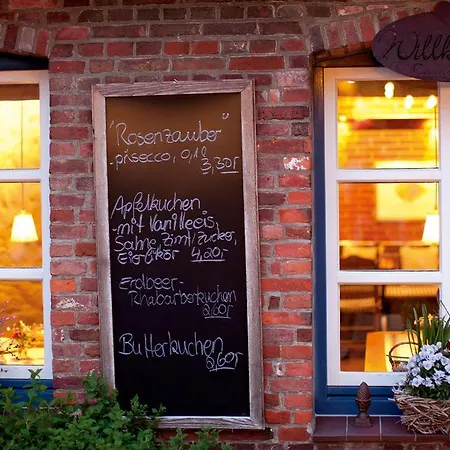 Willk
"Rosenzauber"
- prisecco, 0,1l
3,30r
Apfelkuchen
- mit Vanilleeis,
Sahne, Zimt/Zucker,
Eierlikör 4,20r
Erdbeer-
- Rhabarberkuchen
2,60r
Butterkuchen
2,60r